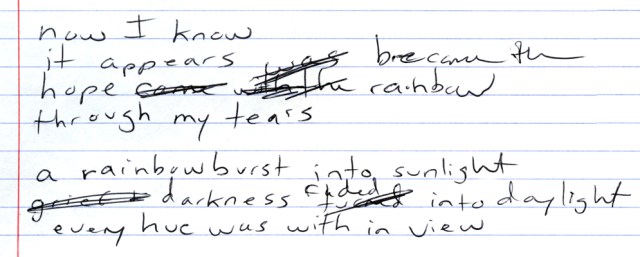 now I know
it appears became the
hope rainbow
through my tears
a rainbow burst into sunlight
darkness faded into daylight
every hue was with in view